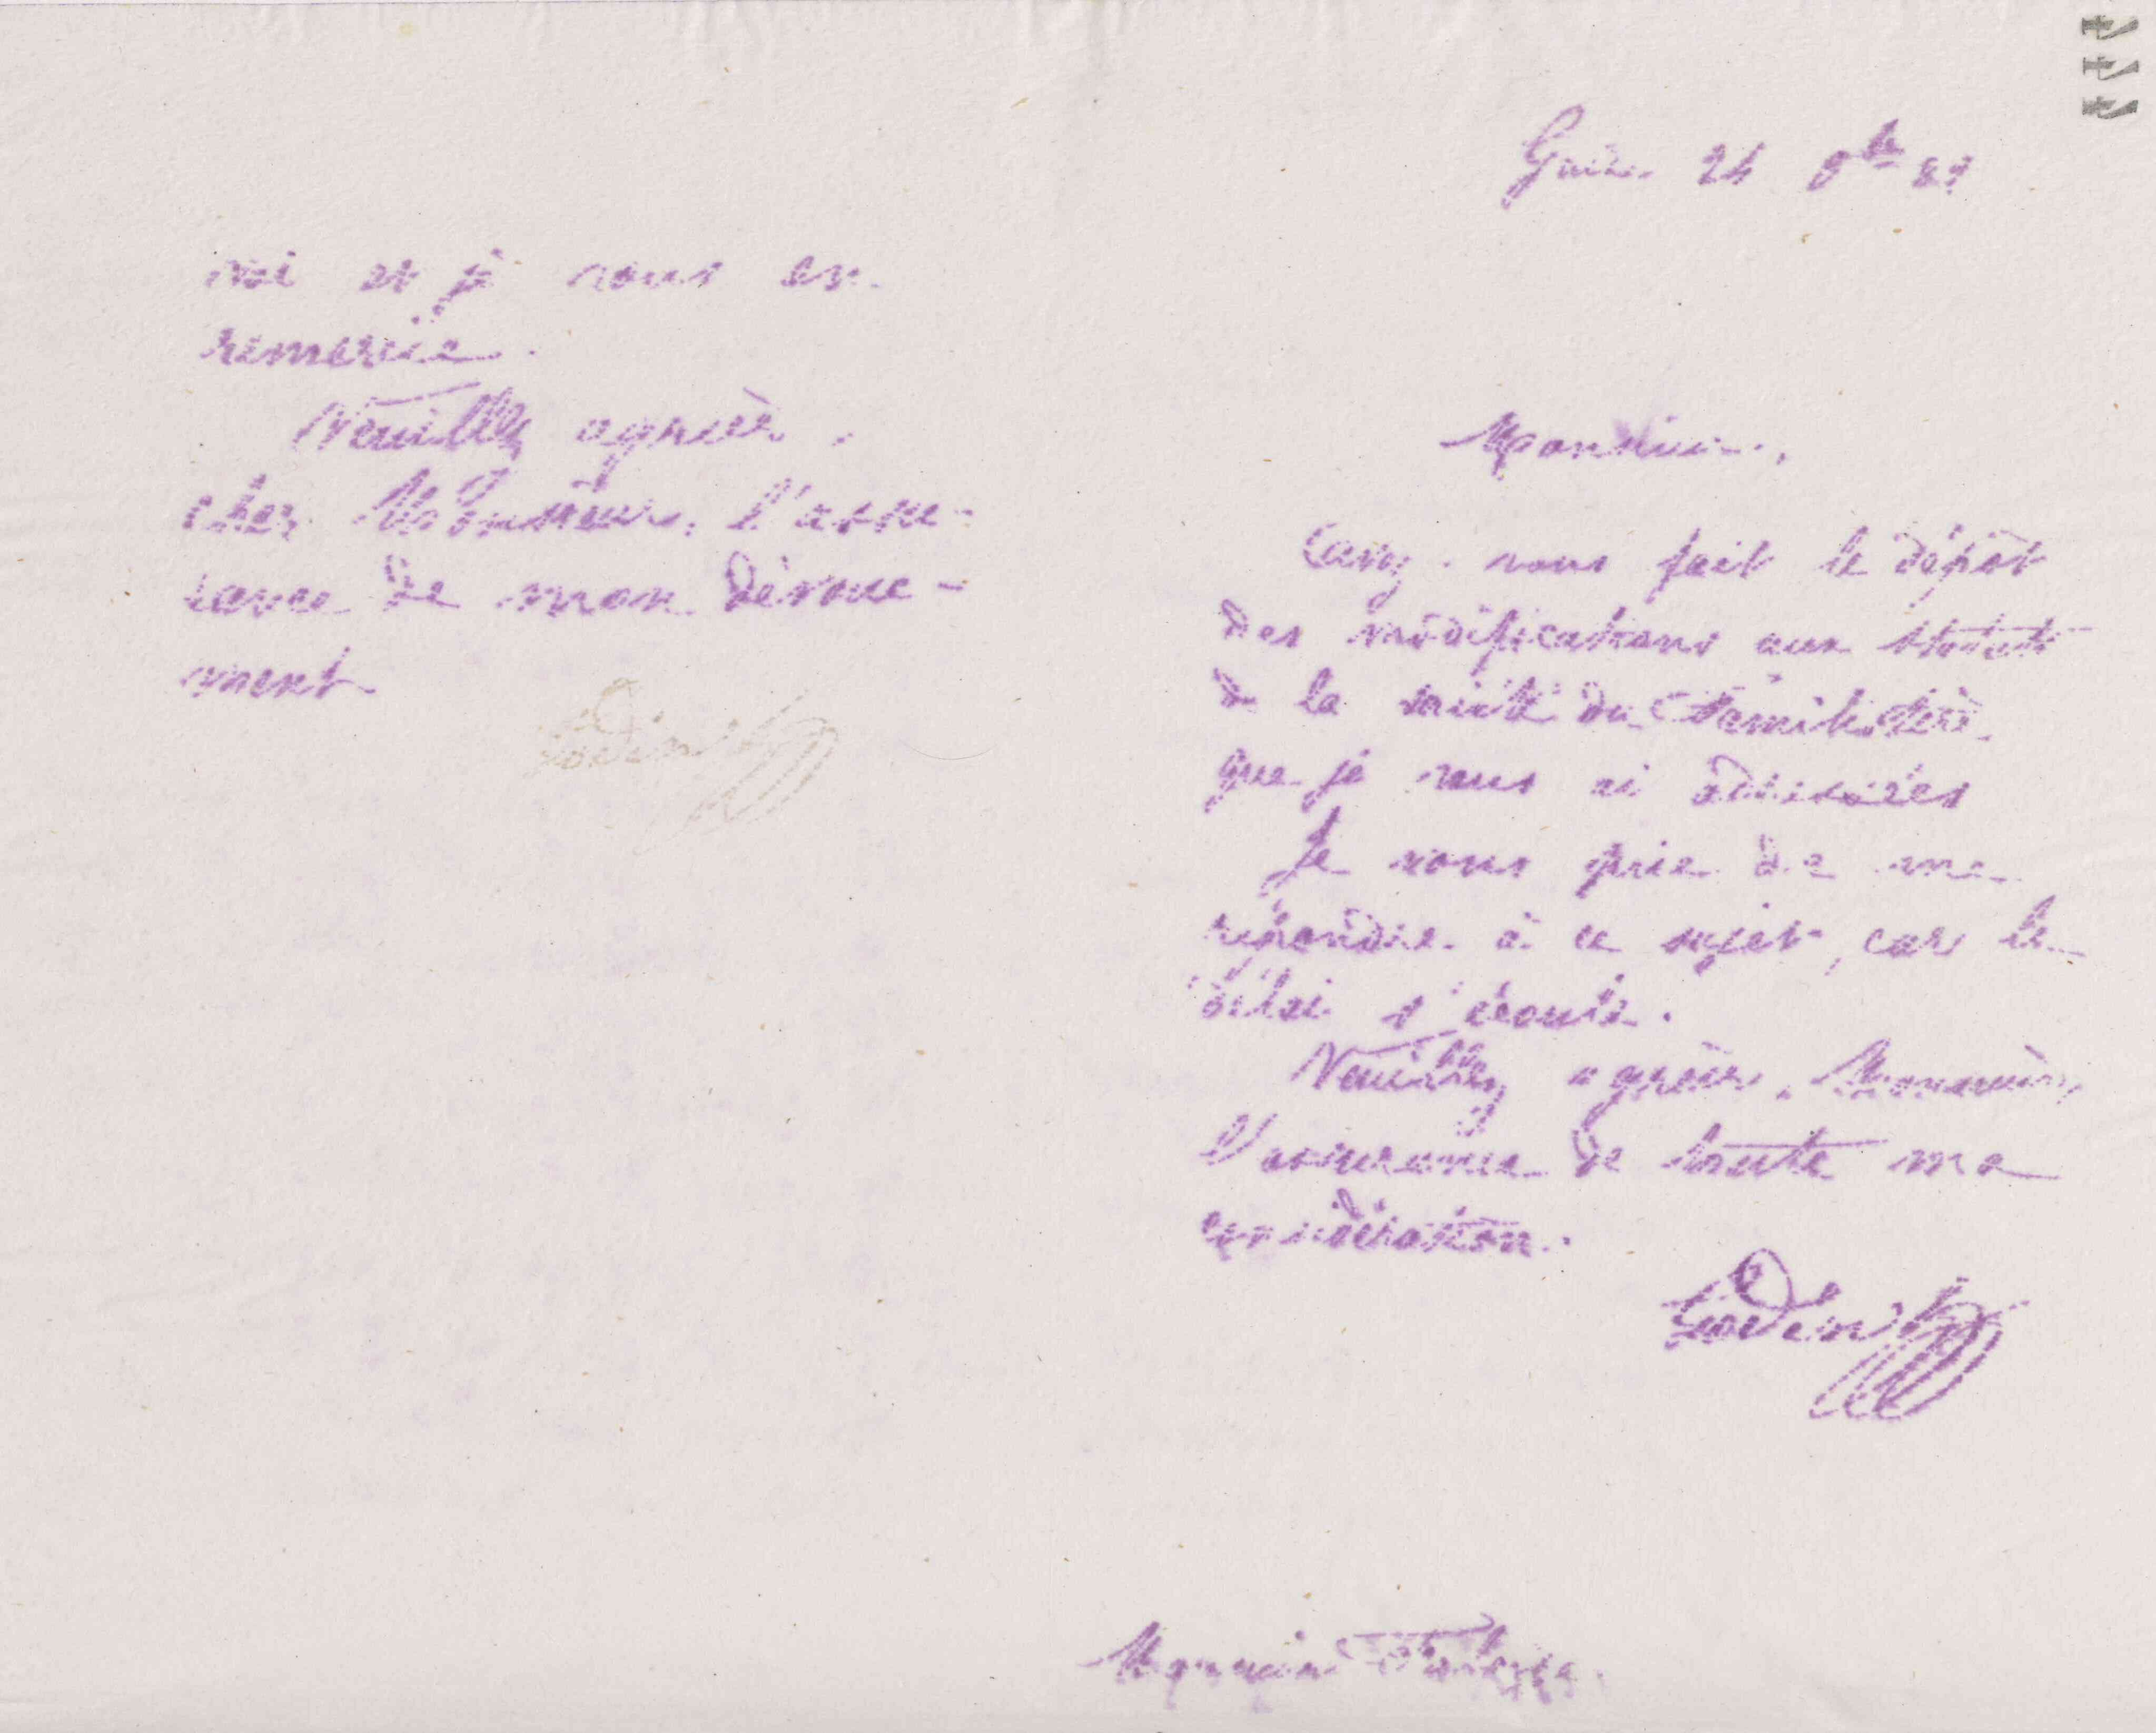 moi et je vous en
remercie.
Veuillez agréer,
cher Monsieur, l'assu-
rance de mon dévoue-
ment
Godin
Guise 24 8bre 89
Monsieur,
Avez-vous fait le dépôt
des modifications aux statuts
de la société du Familistère
que je vous ai adressées
Je vous prie de me
répondre à ce sujet, car le
délai s'écoule.
Veuillez agréer, Monsieur,
l'assurance de toute ma
considération.
Godin
Monsieur